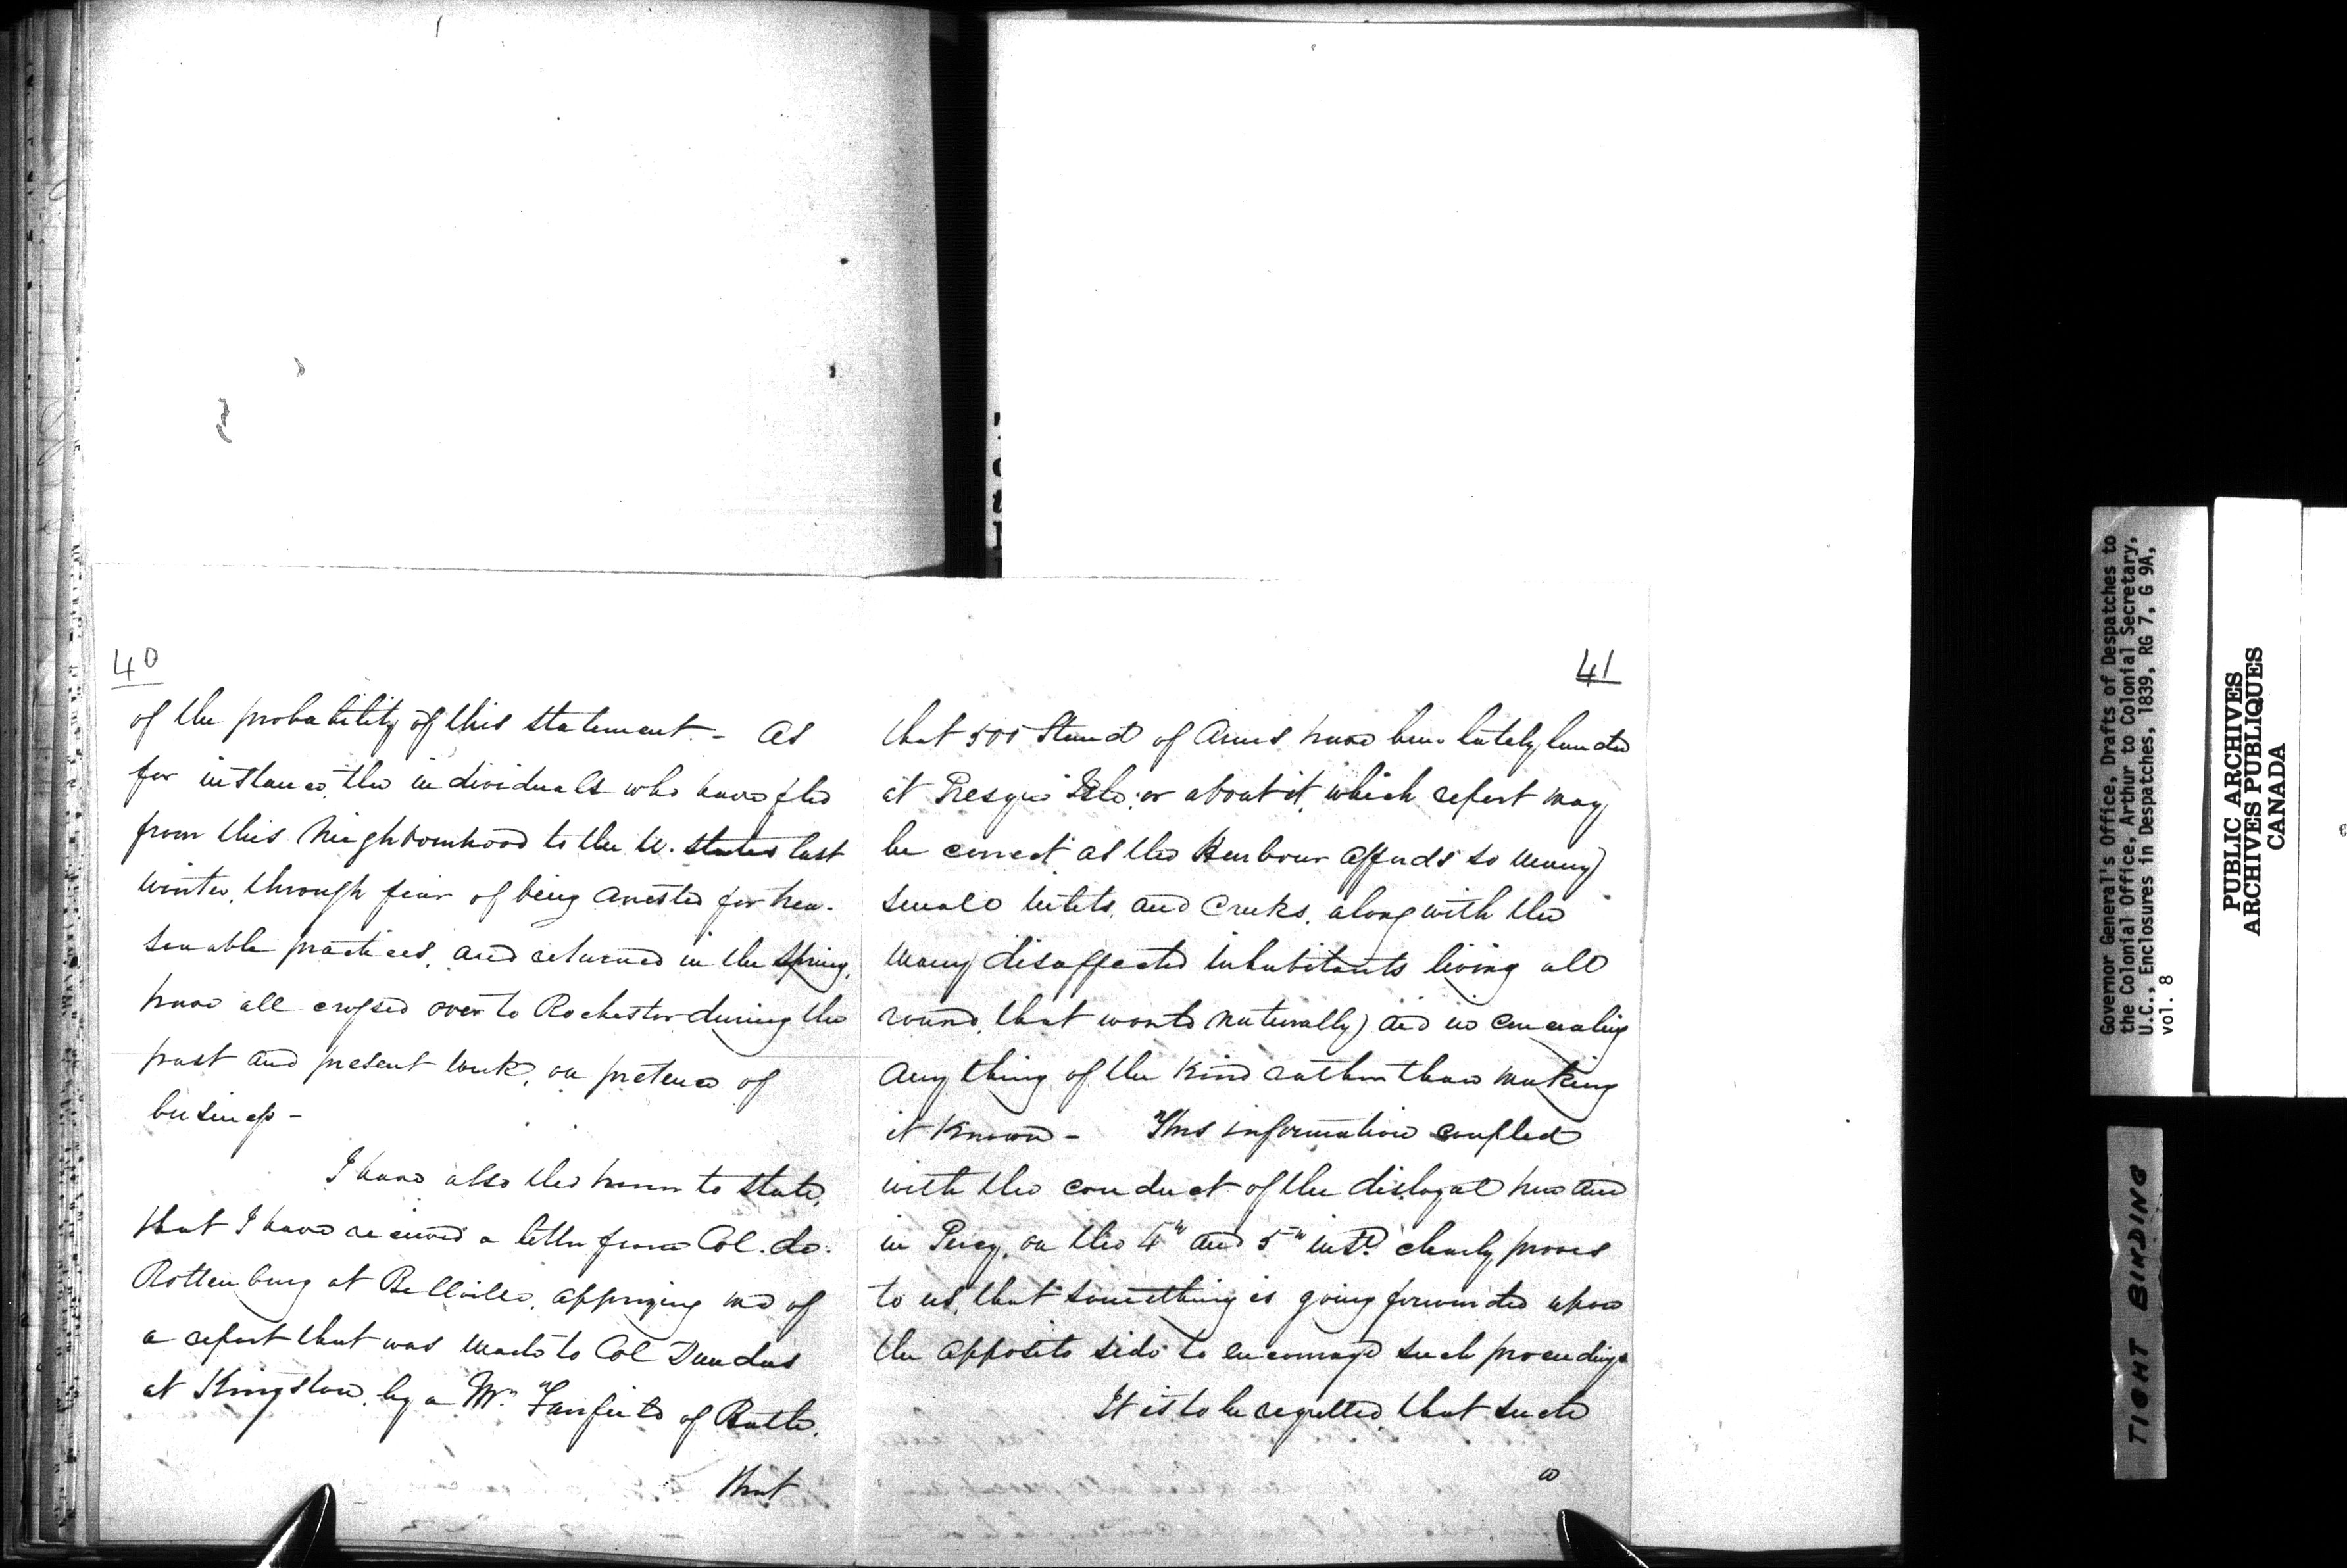 40
of the probability of this statement - as
for instance, the individuals who have fled
from this Neighbourhood to the U. States last
Winter, through fear of being arrested for trea-
sonable practices, and returned in the Spring,
have all crossed over to Rochester during the
past and present week, on pretence of
business -
I have also the honor to state,
that I have received a letter from Col. de
Rottenburg at Belleville, apprizing me of
a report that was made to Col Dundas
at Kingston, by a Mr. Fairfield of Bath,
that
41
that 500 Stand of Arms have been lately landed
at Presqu Isle, or about it, which report may
be correct as the Harbour affords so many
small inlets, and Creeks, along with the
many disaffected inhabitants living all
round, that would naturally aid in concealing
any thing of the kind rather than making
it known - This information coupled
with the conduct of the disloyal here and
in Percy, on the 4th and 5th inst. clearly proves
to us, that something is going forward upon
the opposite side to encourage such proceedings
It is to be regretted, that such
a
Governor General's Office, Drafts of Despatches to
the Colonial Office, Arthur to Colonial Secretary,
U.C., Enclosures in Despatches, 1839, RG 7, G 9A,
vol. 8
PUBLIC ARCHIVES
ARCHIVES PUBLIQUES
CANADA
TIGHT BINDING